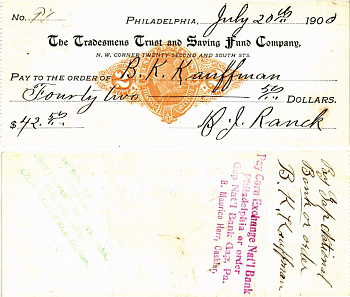 No. 
PHILADELPHIA, July 20th 1900
The Tradesmens Trust and Saving Fund Company,
N. W. CORNER TWENTY-SECOND AND SOUTH STS.
PAY TO THE ORDER OF B. K. Kauffman
Fourty two 50 DOLLARS.
$42.50 B. J. Ranck
Pay Corn Exchange Nat'l Bank
Philadelphia or order
Gap Nat'l Bank Gap, Pa.
B. Maurice Herr, Cashier.
Pay Gap National
Bank or order
B. K. Kauffman